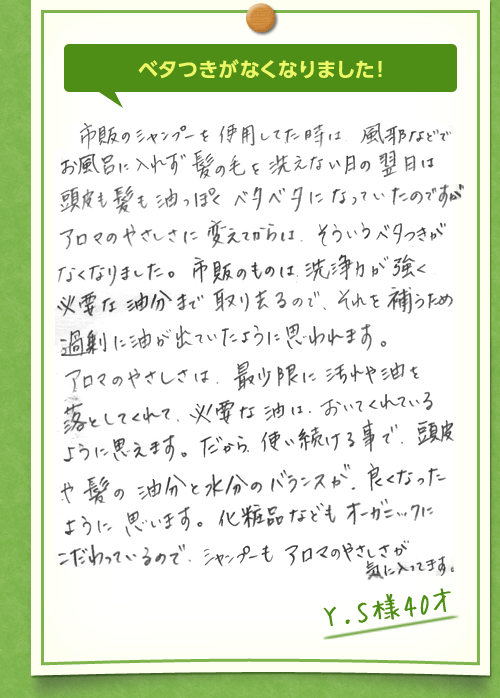 ベタつきがなくなりました!
市販のシャンプーを使用してた時は、風邪などで
お風呂に入れず髪の毛を洗えない日の翌日は
頭皮も髪も油っぽくベタベタになっていたのですが
アロマのやさしさに変えてからは、そういうベタつきが
なくなりました。市販のものは、洗浄力が強く、
必要な油分まで取り去るので、それを補うため
過剰に油が出ていたように思われます。
アロマのやさしさは、最少限に汚れや油を
落としてくれて、必要な油は、おいてくれている
ように思えます。だから、使い続ける事で、頭皮
や髪の油分と水分のバランスが、良くなった
ように思います。化粧品などもオーガニックに
こだわっているので、シャンプーもアロマのやさしさが
気に入ってます。
Y.S様40才